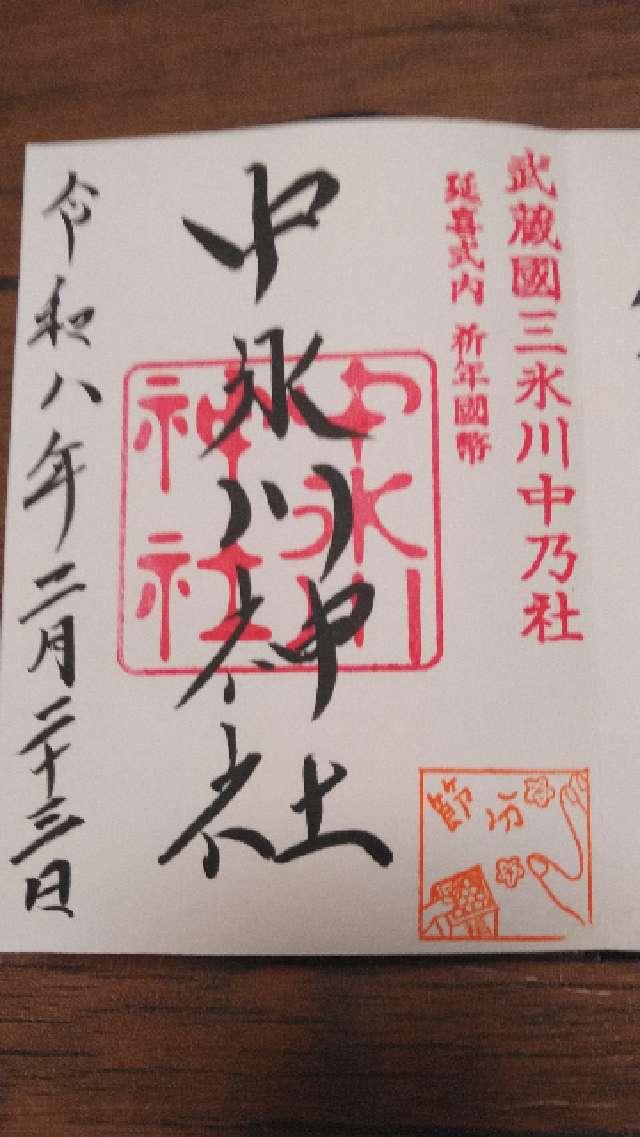 武蔵國三氷川中乃社
延喜式内 祈年國幣
中氷川神社
中氷川
神社
節分
令和八年二月二十三日